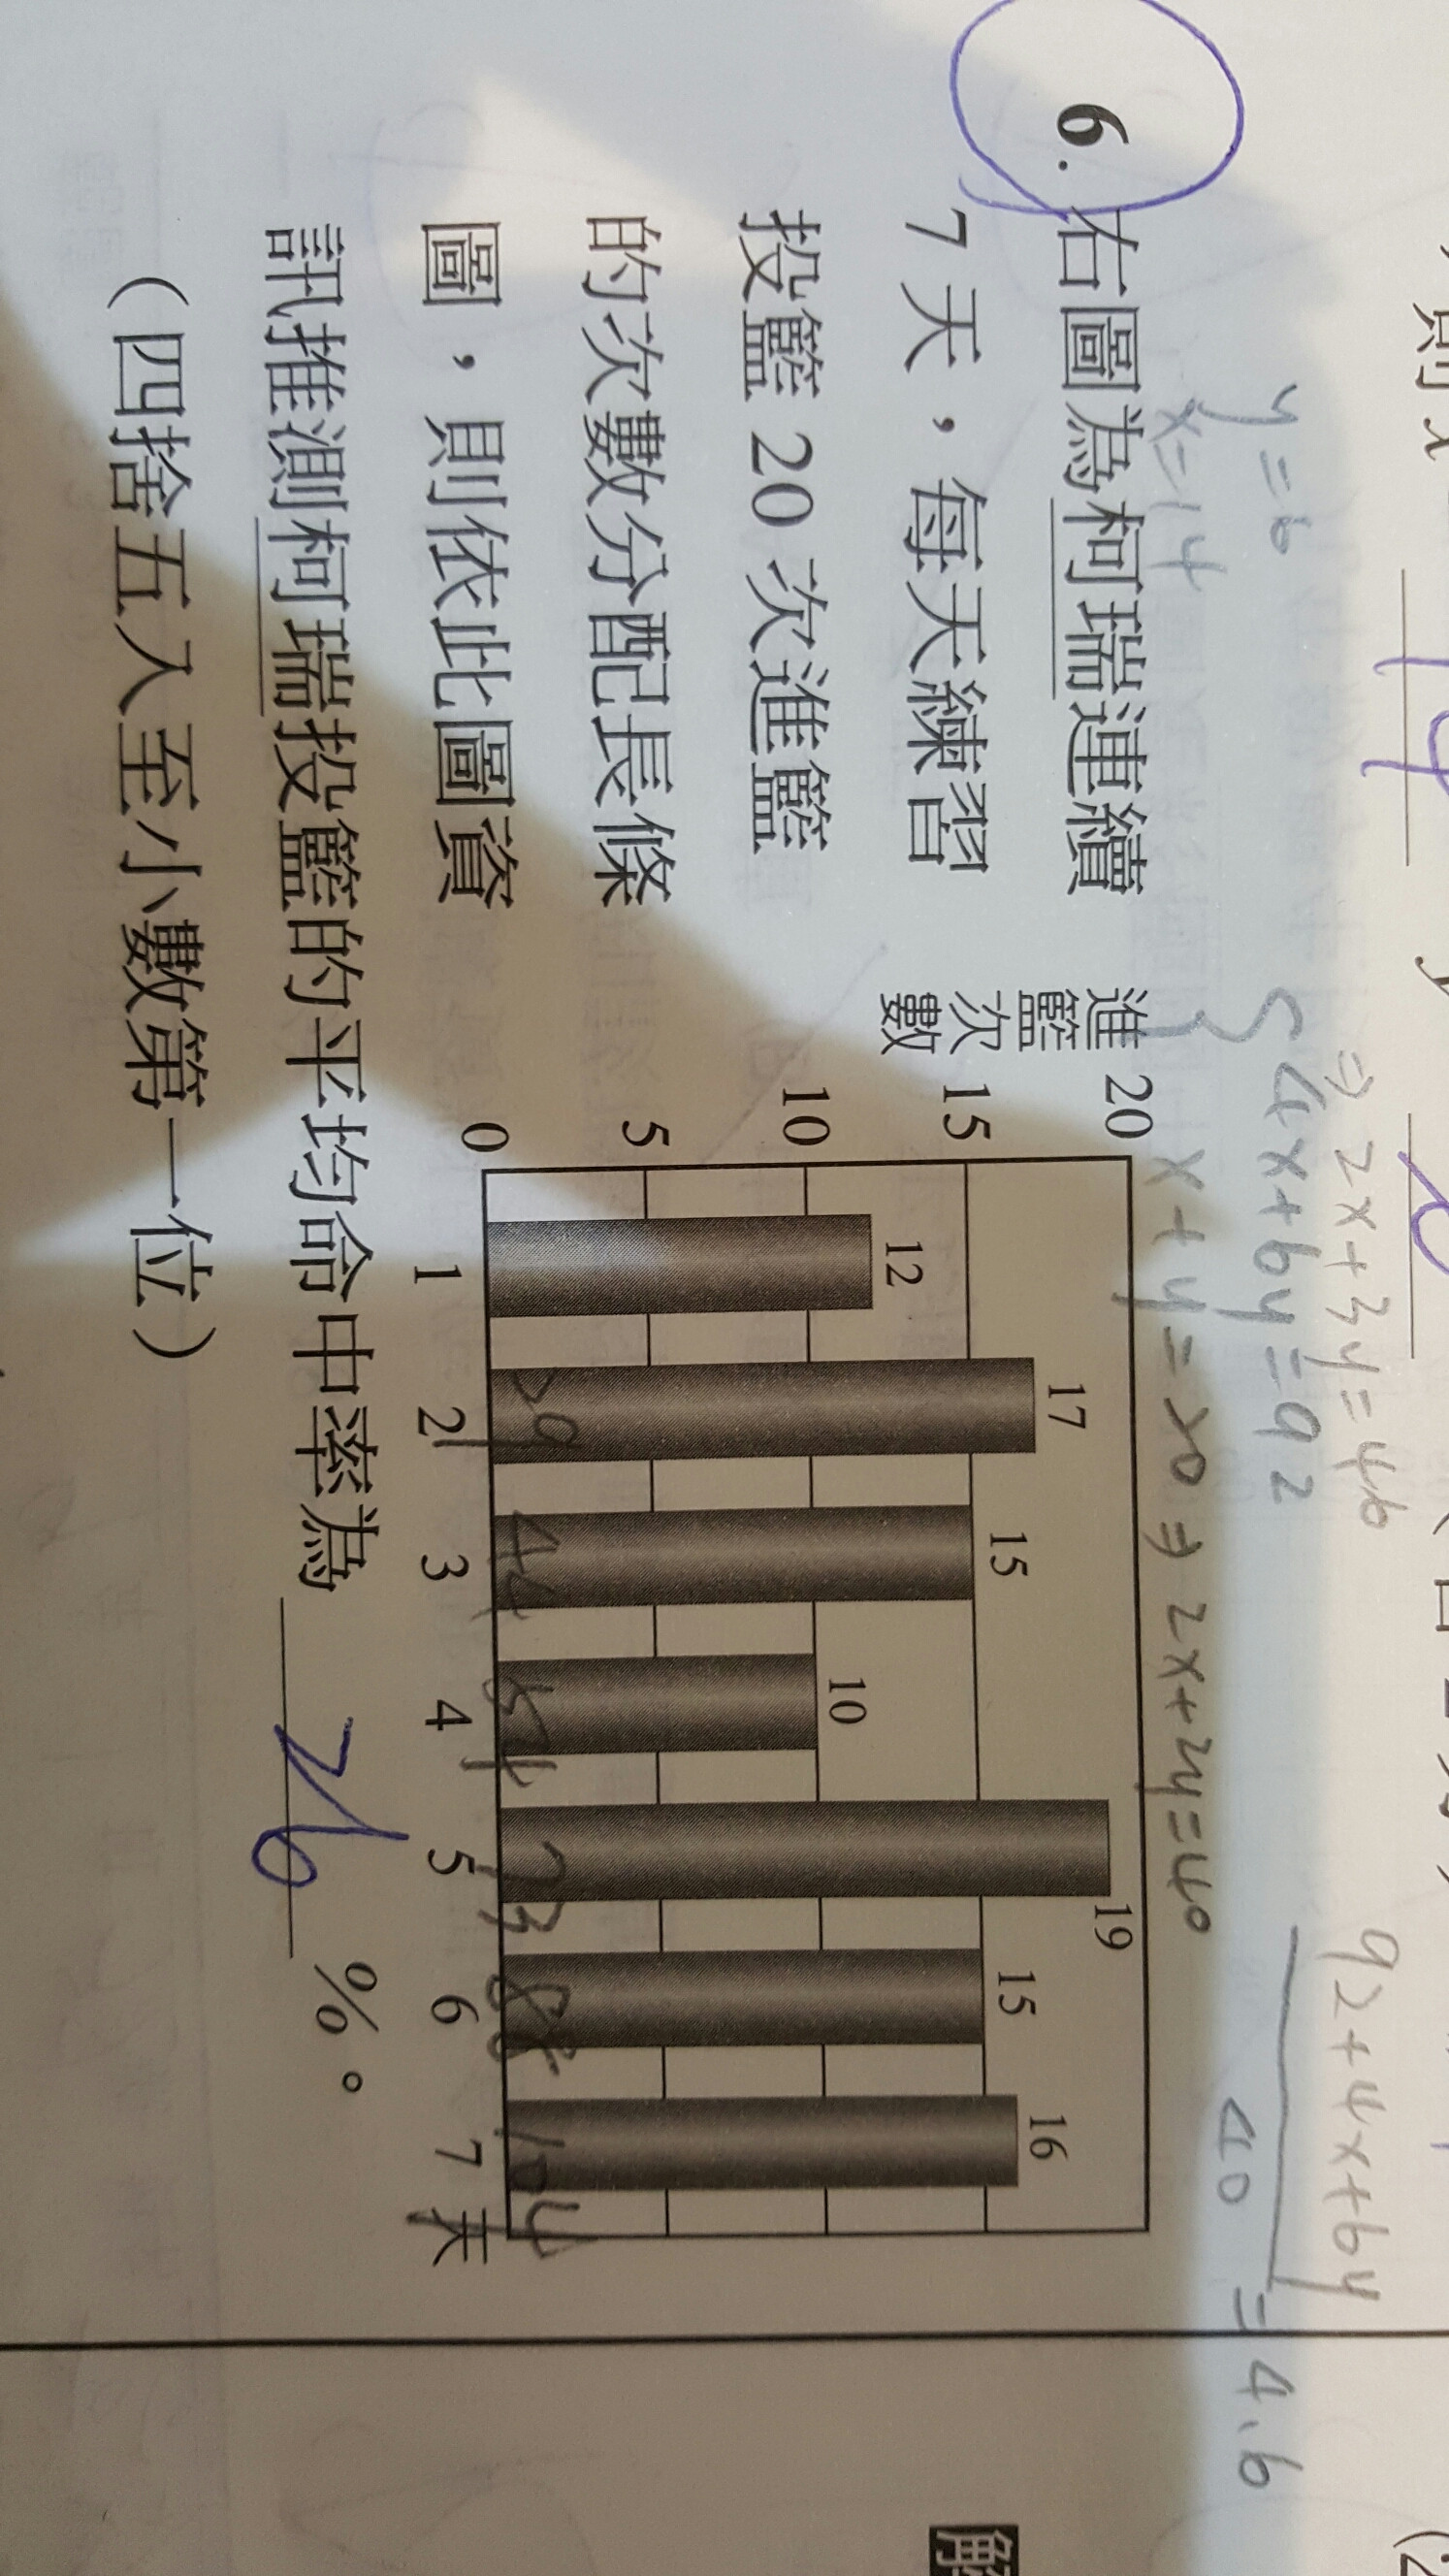 則 x 14 y 6
⇒ 2x+3y=46
92+4x+6y
y=6
4x+6y=92
40
= 4.6
x=14
x+y=20 ⇒ 2x+2y=40
6. 右圖為柯瑞連續
7 天，每天練習
投籃 20 次進籃
的次數分配長條
圖，則依此圖資
訊推測柯瑞投籃的平均命中率為 %。
（四捨五入至小數第一位）
進籃次數
20
15
10
5
0
12
17
15
10
19
15
16
29
44
54
73
88
104
1 2 3 4 5 6 7 天
解